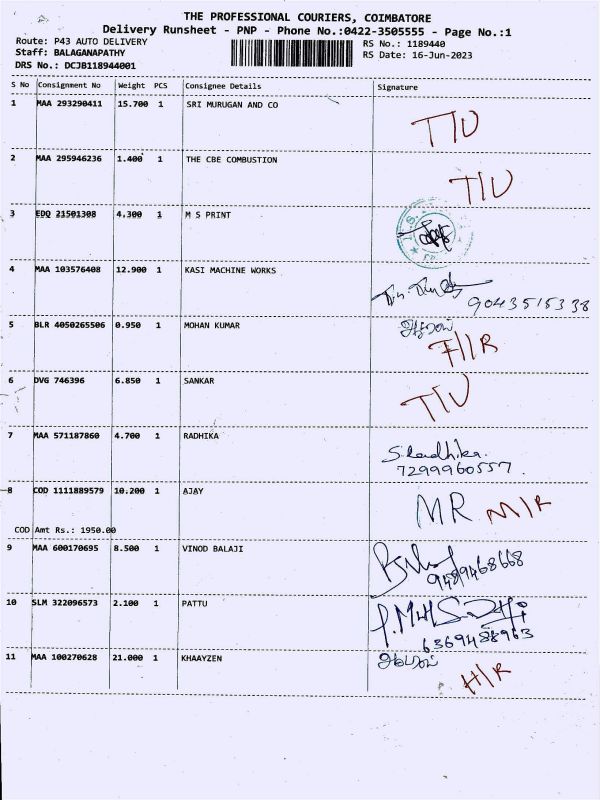 THE PROFESSIONAL COURIERS, COIMBATORE
Delivery Runsheet - PNP - Phone No.:0422-3505555 - Page No.:1
Route: P43 AUTO DELIVERY RS No.: 1189440
Staff: BALAGANAPATHY RS Date: 16-Jun-2023
DRS No.: DCJB118944001
S No Consignment No Weight PCS Consignee Details Signature
1 MAA 293290411 15.700 1 SRI MURUGAN AND CO
T/U
2 MAA 295946236 1.400 1 THE CBE COMBUSTION
T/U
3 EDQ 21501308 4.300 1 M S PRINT
4 MAA 103576408 12.900 1 KASI MACHINE WORKS
9043515338
5 BLR 4050265506 0.950 1 MOHAN KUMAR
6 DVG 746396 6.850 1 SANKAR
T/U
7 MAA 571187860 4.700 1 RADHIKA
S.Radhika.
7299960557.
8 COD 1111889579 10.200 1 AJAY
MR M/R
COD Amt Rs.: 1950.00
9 MAA 600170695 8.500 1 VINOD BALAJI
9489468668
10 SLM 322096573 2.100 1 PATTU
6369488963
11 MAA 100270628 21.000 1 KHAAYZEN
H/R